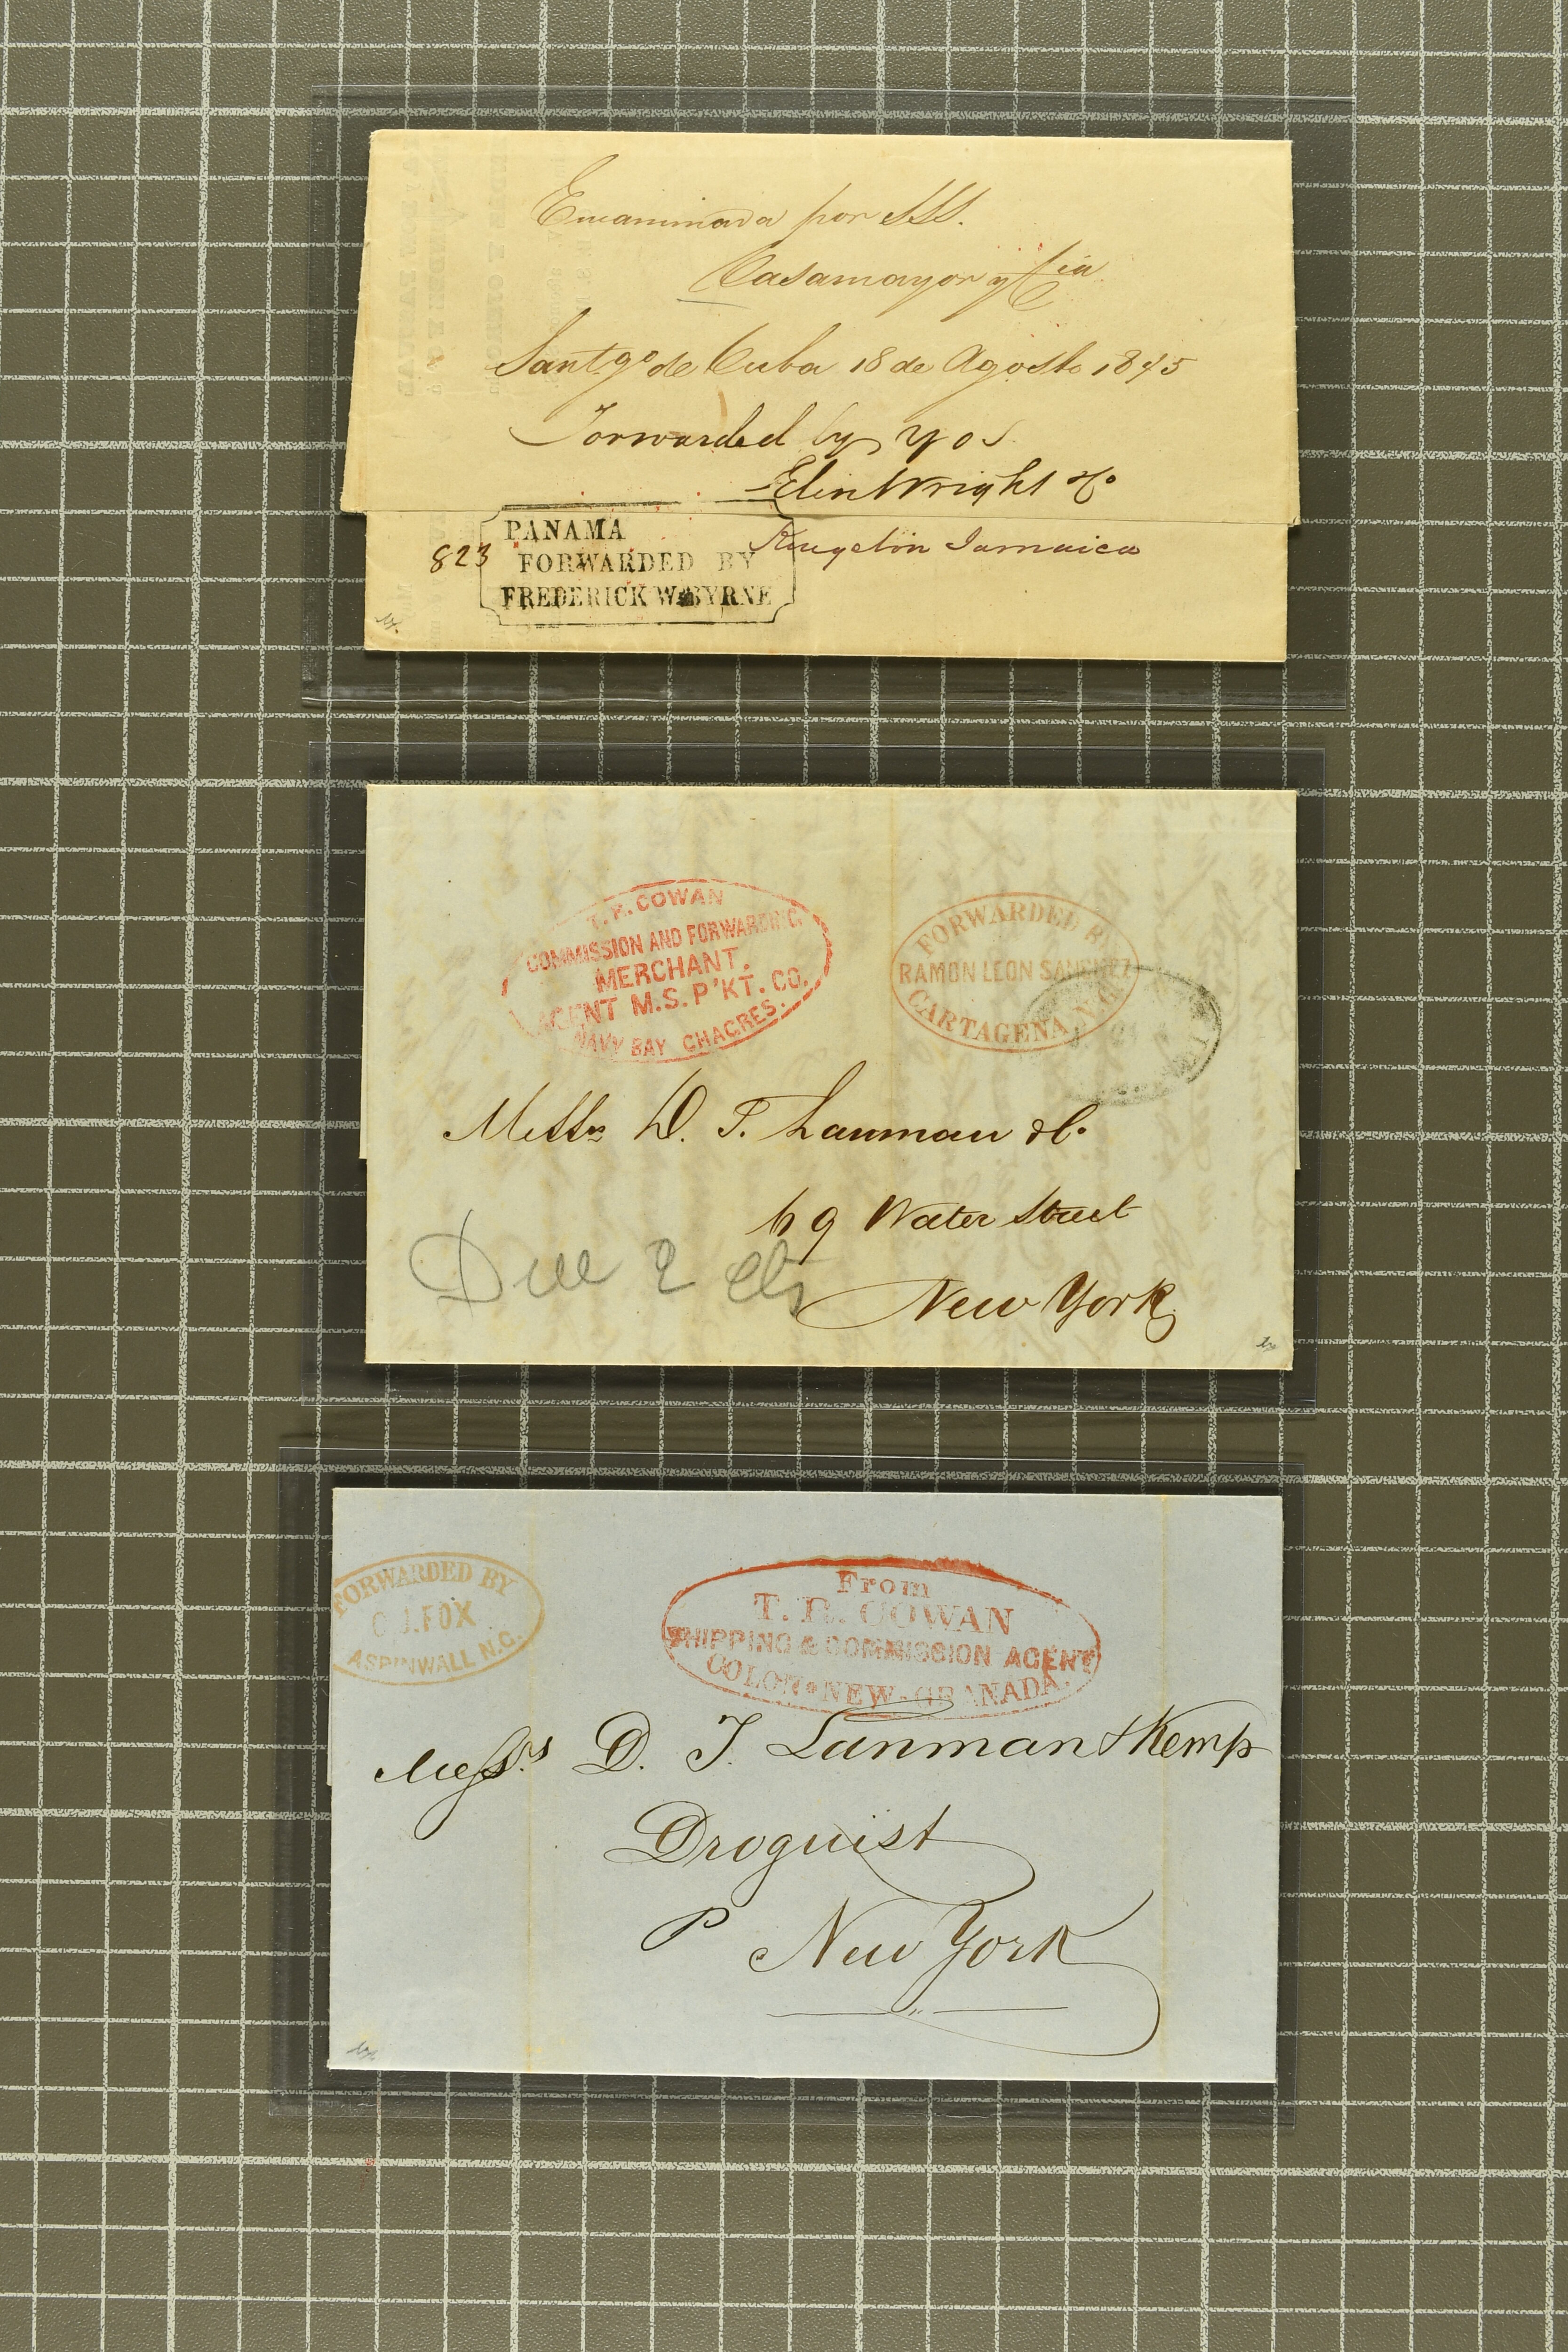 Encaminada por SSS.
Casamayor y Cia
Santgo de Cuba 18 de Agosto 1845
Forwarded by yos
Edin Wright & Co
Kingston Jamaica
823
PANAMA
FORWARDED BY
FREDERICK W. BYRNE
T. R. COWAN
COMMISSION AND FORWARDING
MERCHANT.
AGENT M.S.P'KT. CO.
NAVY BAY CHAGRES.
FORWARDED BY
RAMON LEON SANCHEZ
CARTAGENA N.G.
Messrs D. T. Lanman & Co
69 Water Street
Due 2 cts
New York
FORWARDED BY
C. J. FOX
ASPINWALL N.G.
From
T. R. COWAN
SHIPPING & COMMISSION AGENT
COLON • NEW - GRANADA.
Messrs D. T. Lanman & Kemp
Droguist
P New York